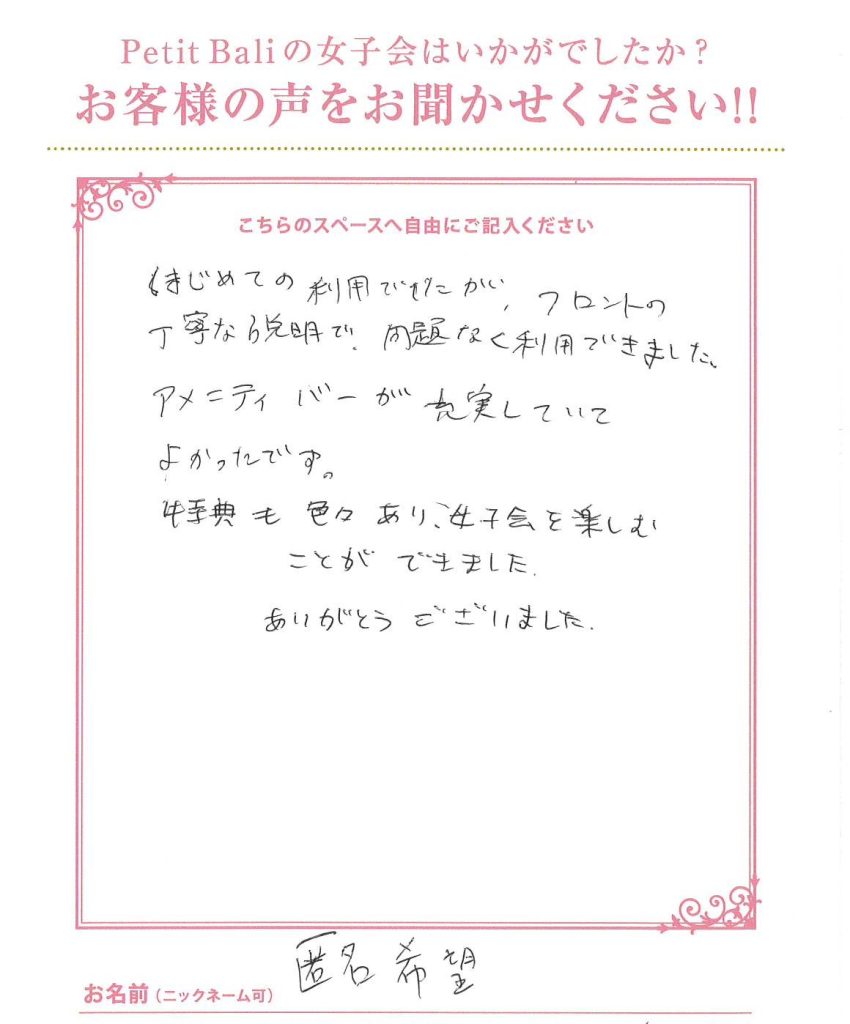 Petit Baliの女子会はいかがでしたか？
お客様の声をお聞かせください!!
こちらのスペースへ自由にご記入ください
はじめての利用でしたが、フロントの
丁寧な説明で、問題なく利用できました。
アメニティバーが充実していて
よかったです。
特典も色々あり、女子会を楽しむ
ことができました。
ありがとうございました。
匿名希望
お名前（ニックネーム可）